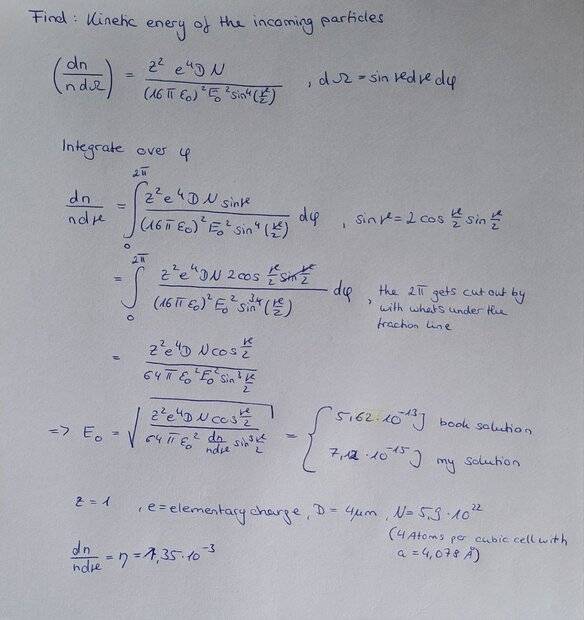 Find: Kinetic enery of the incoming particles
(dn/ndΩ) = z² e⁴ D N / (16π ε₀)² E₀² sin⁴(ϑ/2) , dΩ = sinϑdϑdφ
Integrate over φ
dn/ndϑ = ∫₀^2π z²e⁴D N sinϑ / (16π ε₀)² E₀² sin⁴(ϑ/2) dφ , sinϑ = 2 cos ϑ/2 sin ϑ/2
= ∫₀^2π z²e⁴DN 2cos ϑ/2 sin ϑ/2 / (16π ε₀)² E₀² sin³⁴(ϑ/2) dφ , the 2π gets cut out by
with whats under the
fraction line
= z²e⁴D N cos ϑ/2 / 64π ε₀² E₀² sin³ ϑ/2
=> E₀ = √(z²e⁴D N cos ϑ/2 / 64π ε₀² dn/ndϑ sin³ ϑ/2) = { 5,62·10⁻¹³ J book solution
7,12·10⁻¹⁵ J my solution
z = 1 , e = elementary charge, D = 4μm, N = 5,9·10²²
(4 Atoms per cubic cell with
a = 4,078 Å)
dn/ndϑ = η = 1,35·10⁻³